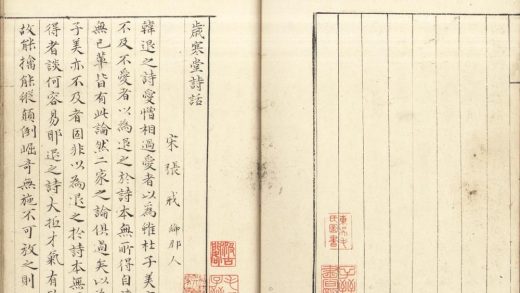 歲寒堂詩話
宋張戒絳郡人
韓退之詩愛憎相過愛者以為雖杜子美
不及不愛者以為退之於詩本無所得自
無已輩皆有此論然二家之論俱過矣以
子美亦不及者固非以為退之於詩本無
得者談何容易耶退之詩大抵才氣有
故能擒能縱顛倒崛奇無施不可放之則